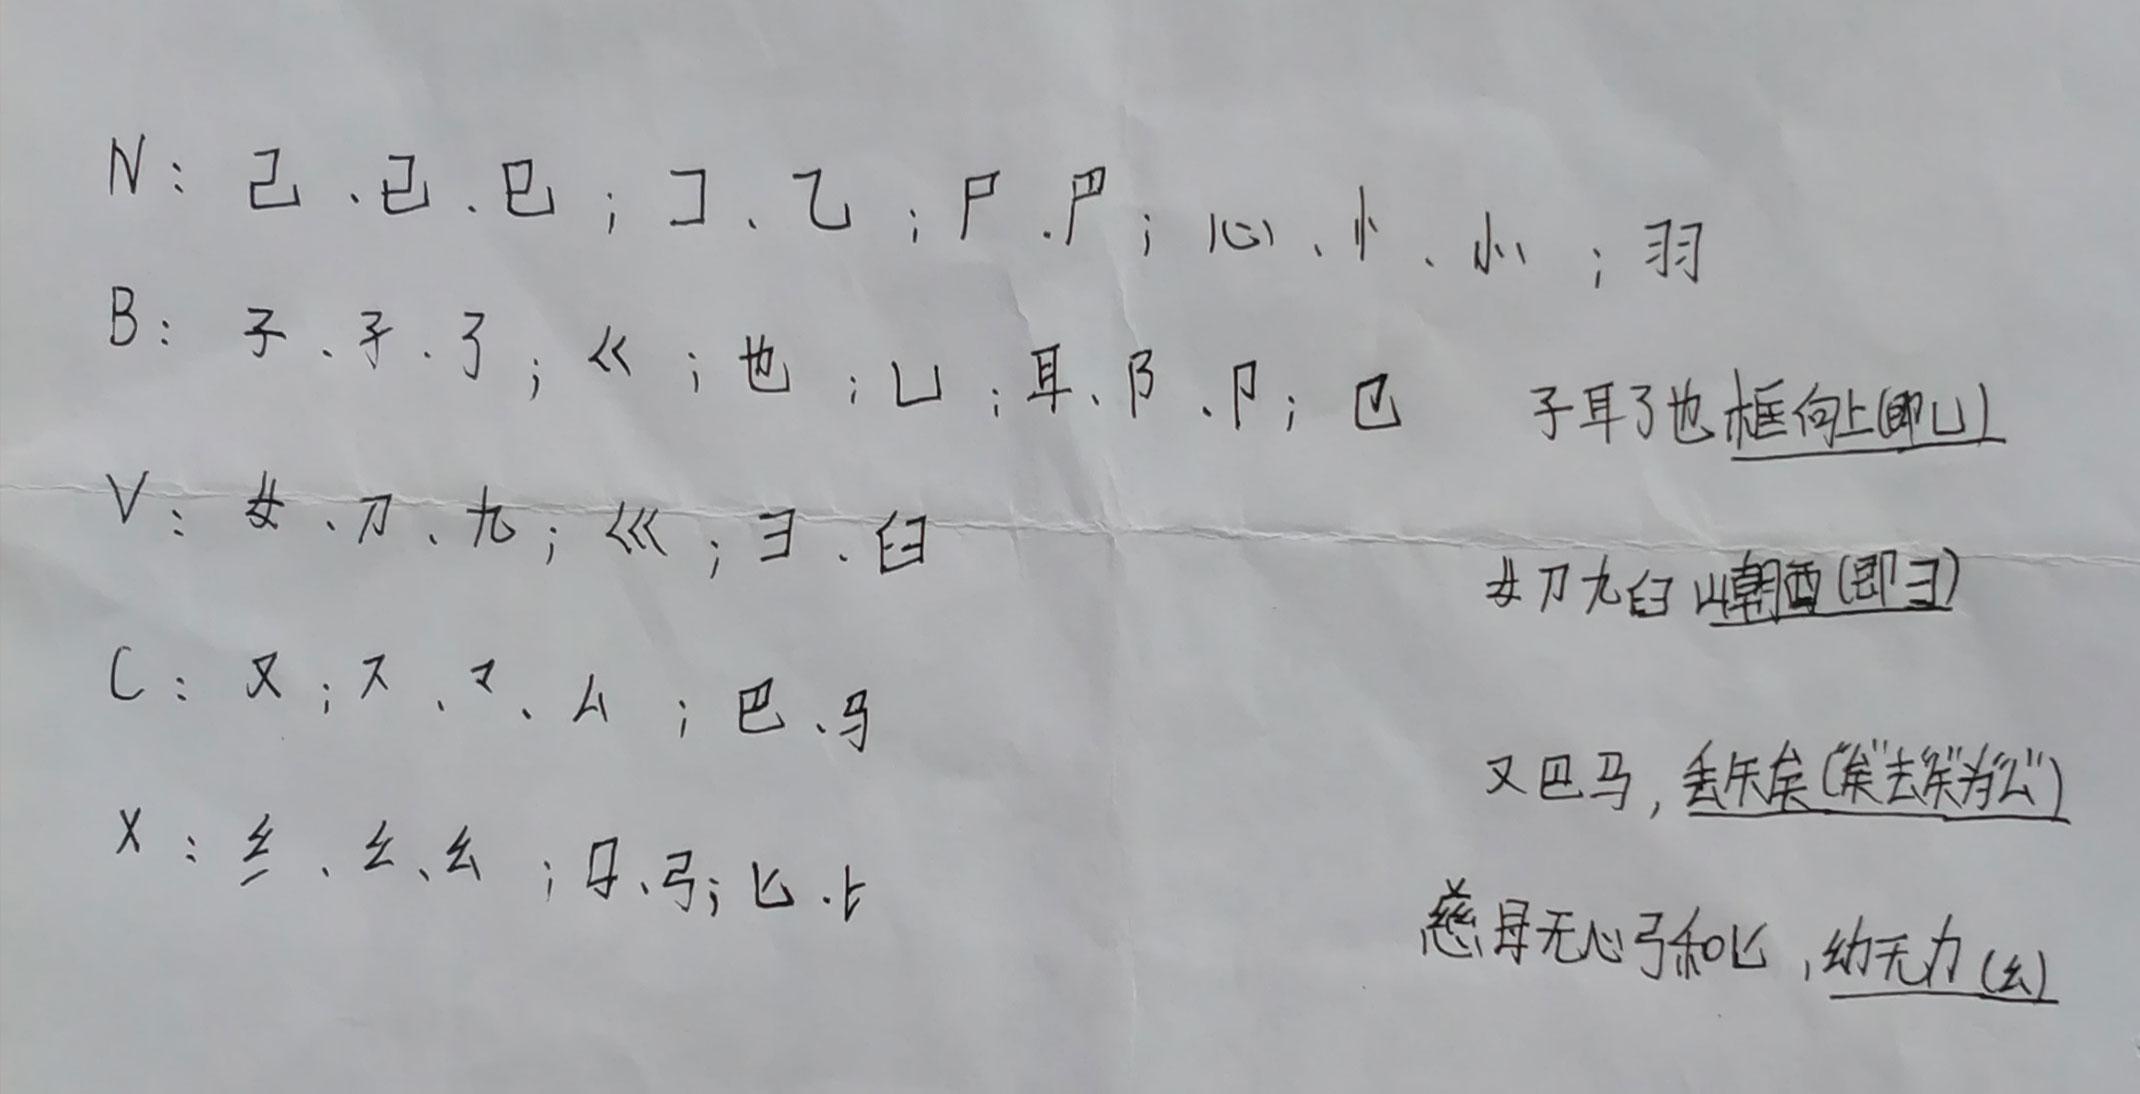 N：己、已、巳；コ、乙；尸、𠃜；心、忄、㣺；羽
B：子、孑、了；巜；也；凵；耳、阝、卩；㔾 子耳了也框向上(即凵)
V：女、刀、九；巛；彐、臼 女刀九臼山朝西(即彐)
C：又；ス、マ、厶；巴、马 又巴马，丢矢矣("矣"去"矢"为"厶")
X：纟、幺；弓；匕 慈母无心弓和匕，幼无力(幺)